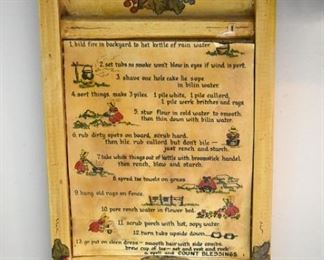 1. bild fire in backyard to het kettle of rain water.
2. set tubs so smoke won't blow in eyes if wind is pert.
3. shave one hole cake lie sope
in bilin water.
4. sort things. make 3 piles. 1 pile white, 1 pile cullord,
1 pile werk britches and rags.
5. stur flour in cold water to smooth
then thin down with bilin water.
6. rub dirty spots on board, scrub hard.
then bile. rub cullord but don't bile -
just rench and starch.
7. take white things out of kettle with broomstick handel.
then rench, blew and starch.
8. spred tee towels on grass.
9. hang old rags on fence.
10. pore rench water in flower bed.
11. scrub porch with hot, sopy water
12. turn tubs upside down.
13. go put on cleen dress - smooth hair with side combs.
brew cup of tee - set and rest and rock
a spell and COUNT BLESSINGS